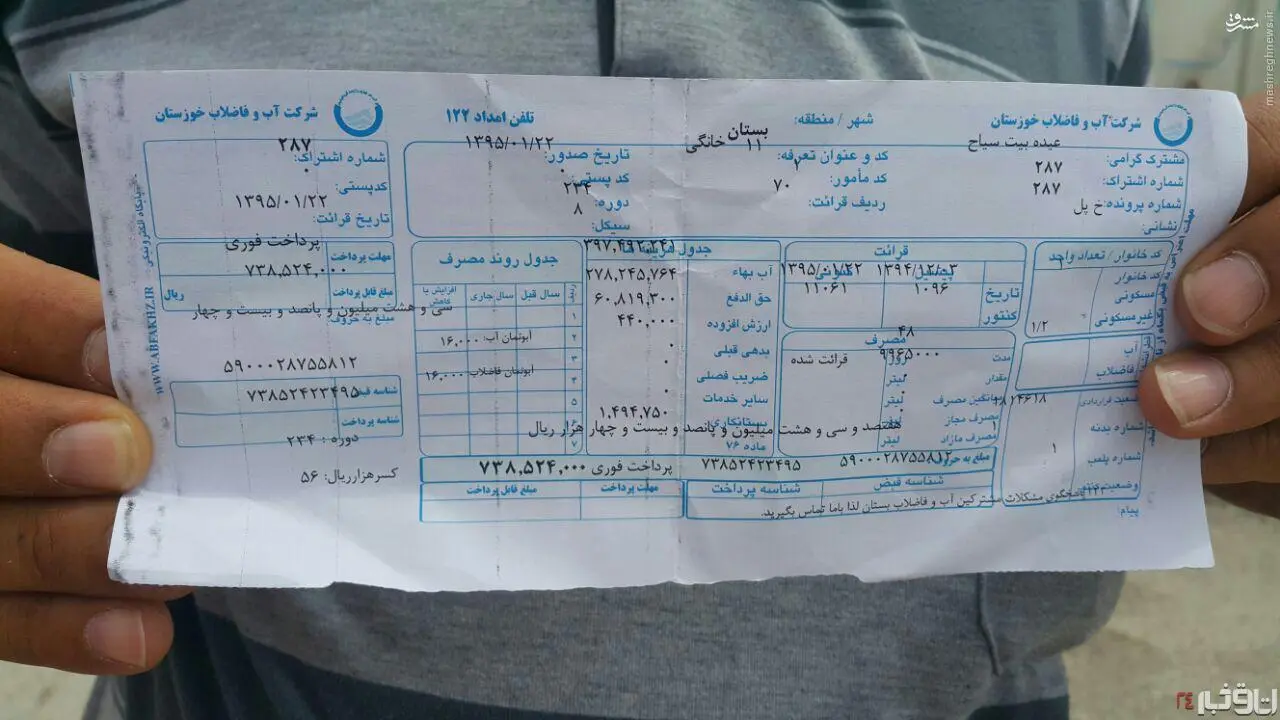 مشرق
mashreghnews.ir
شرکت آب و فاضلاب خوزستان
شهر / منطقه:
بستان
تلفن امداد ۱۲۲
شرکت آب و فاضلاب خوزستان
مشترک گرامی:
عبده بیت سیاح
شماره اشتراک:
۲۸۷
شماره پرونده:
۲۸۷
نشانی:
خ پل
کد و عنوان تعرفه:
۱۱ خانگی
کد مأمور:
۱
ردیف قرائت:
۷۰
تاریخ صدور:
۱۳۹۵/۰۱/۲۲
کد پستی:
۰
دوره:
۲۳۴
سیکل:
۸
شماره اشتراک:
۲۸۷
کدپستی:
۰
تاریخ قرائت:
۱۳۹۵/۰۱/۲۲
کد خانوار / تعداد واحد
کد خانوار
مسکونی
غیرمسکونی
۱/۲
آب
فاضلاب
شماره بدنه
شماره پلمب
۱
پیام:
قرائت
تاریخ
کنتور
۱۳۹۴/۱۲/۰۳
۱۰۹۶
۱۳۹۵/۰۱/۲۲
۱۱۰۶۱
مصرف
۴۸
مدت
روز
مقدار
۹۹۶۵۰۰۰
لیتر
قرائت شده
میانگین مصرف
لیتر
مصرف مجاز
لیتر
مصرف مازاد
لیتر
۳۹۷,۴۹۲,۲۴۱
آب بهاء
۲۷۸,۲۴۵,۷۶۴
حق الدفع
۶۰,۸۱۹,۳۰۰
ارزش افزوده
۴۴۰,۰۰۰
بدهی قبلی
۰
ضریب فصلی
۰
سایر خدمات
۰
بستانکاری
۱,۴۹۴,۷۵۰
ماده ۷۶
جدول روند مصرف
ردیف
سال قبل
سال جاری
افزایش یا کاهش
۱
۲
۳
۴
۵
۶
۷
آبونمان آب: ۱۶,۰۰۰
آبونمان فاضلاب: ۱۶,۰۰۰
مبلغ به حروف:
هفتصد و سی و هشت میلیون و پانصد و بیست و چهار هزار ریال
۵۹۰۰۰۲۸۷۵۵۸۱۲
۷۳۸۵۲۴۲۳۴۹۵
پرداخت فوری
۷۳۸,۵۲۴,۰۰۰
شناسه قبض
شناسه پرداخت
مهلت پرداخت
مبلغ قابل پرداخت
پاسخگوی مشکلات مشترکین آب و فاضلاب بستان لذا باما تماس بگیرید.
مهلت پرداخت
پرداخت فوری
مبلغ قابل پرداخت
۷۳۸,۵۲۴,۰۰۰
ریال
مبلغ به حروف:
سی و هشت میلیون و پانصد و بیست و چهار
۵۹۰۰۰۲۸۷۵۵۸۱۲
شناسه قبض
۷۳۸۵۲۴۲۳۴۹۵
شناسه پرداخت
دوره : ۲۳۴
کسر هزار ریال: ۵۶
WWW.ABFAKHZ.IR
اتاق خبر ۲۴